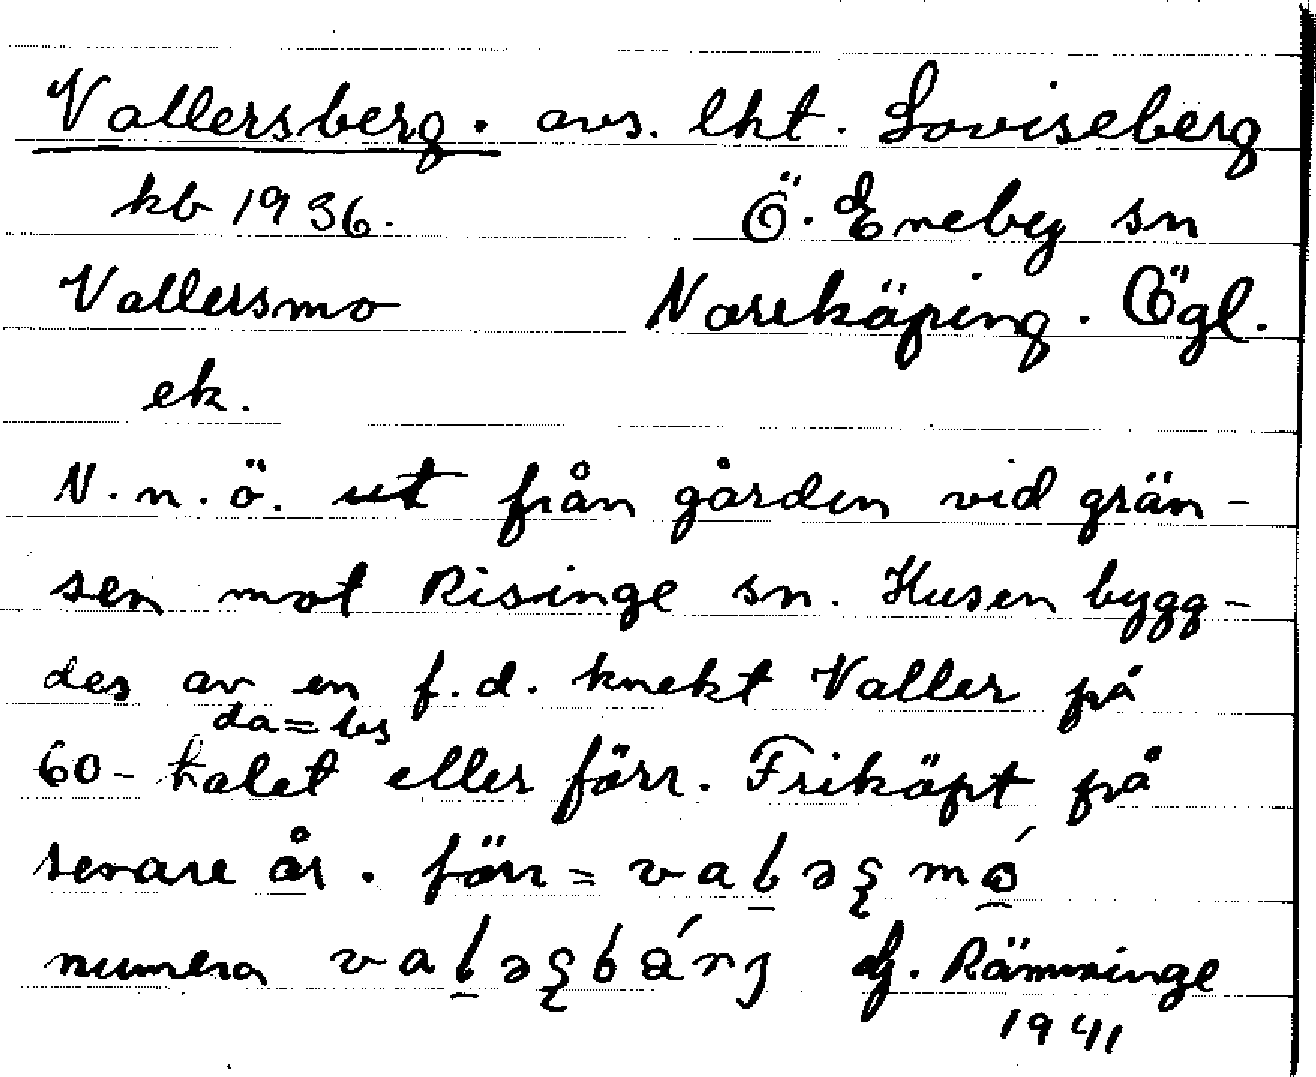 Vallersberg. avs. lht. Loviseberg
kb 1936. Ö. Eneby sn
Vallersmo Norrköping. Ögl.
ek.
N.n.ö. ut från gården vid grän-
sen mot Risinge sn. Husen bygg-
des av en f.d. knekt Valler på
60-talet eller förr. Friköpt på
senare år. förr =
numera Rämminge
1941